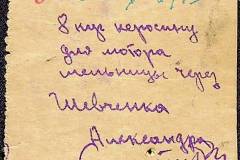 8 кгр керосину
для мотора
мельницы через
Шевченка
Александра